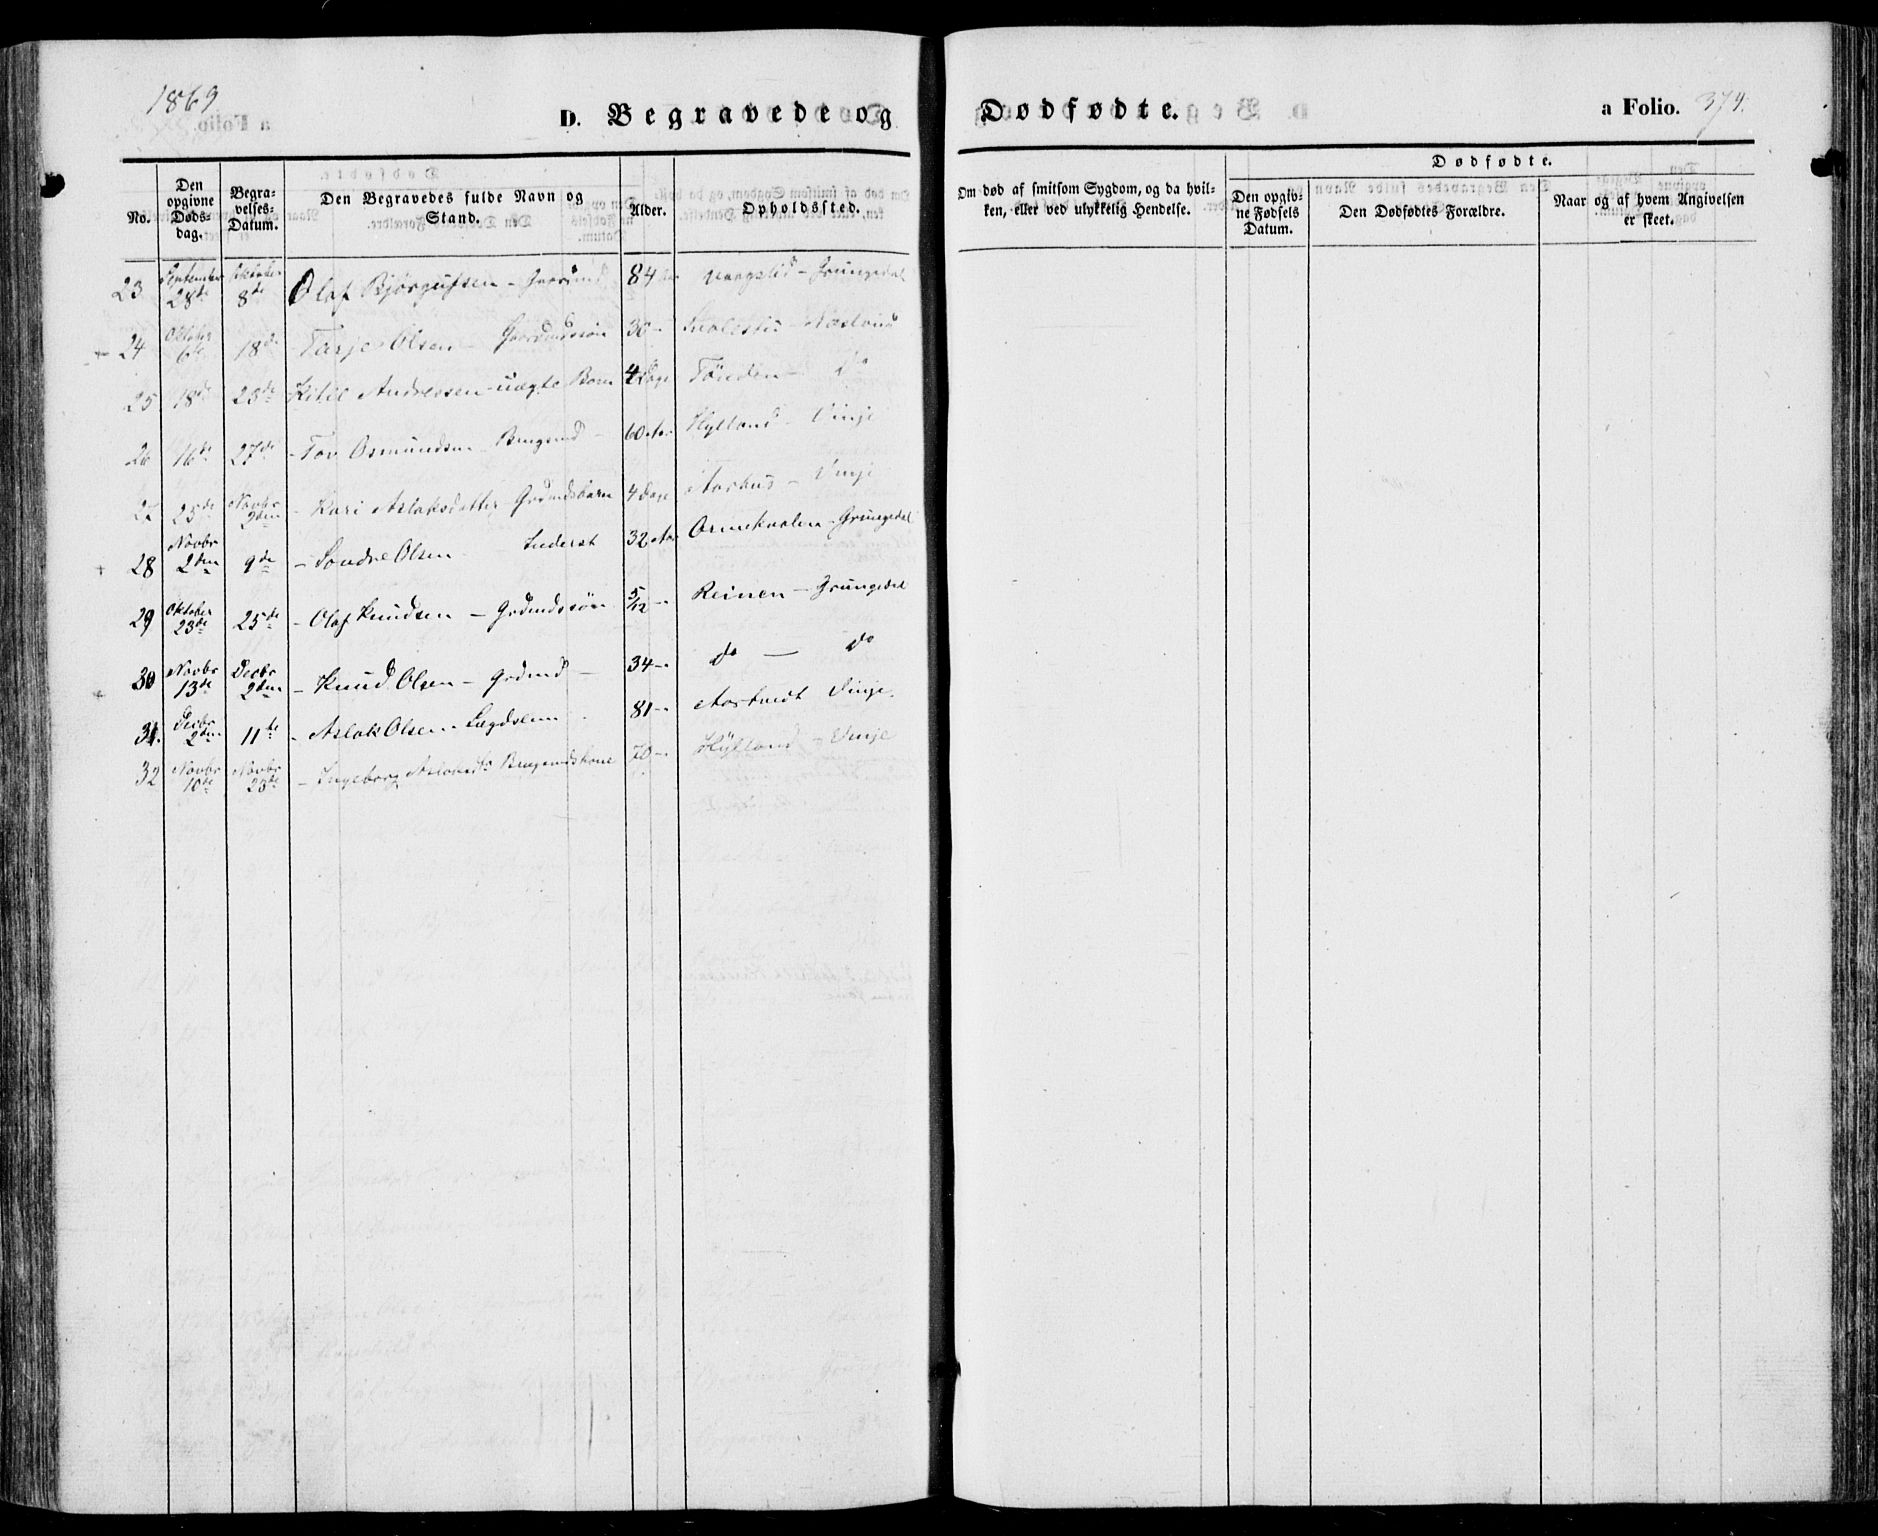 1869
D. Begravede og Dødfødte. a Folio. 374.
Dødfødte.
No.
Den opgivne Døds-dag.
Begra-velses-Datum.
Den Begravedes fulde Navn og Stand.
Alder.
Opholdssted.
Om død af smitsom Sygdom, og da hvil-ken, eller ved ulykkelig Hendelse.
Den opgiv-ne Fødsels Datum.
Den Dødfødtes Forældre.
Naar og af hvem Angivelsen er skeet.
23 September 28de Oktober 8de Olaf Bjørgufsen - 84 Aar Vaagslid - Grungedal
24 Oktober 6te 18de - Tarje Olsen - Gaardmdssøn 30 -
25 18de 23de Kitil Andressen - uægte Barn 4 Dage - Do
26 16de 27de - Tov Osmundsen Brugsmd - 60 Aar Hylland - Vinje
27 25de Novbr 2den - Kari Aslaksdatter Grdmdsbarn 4 Dage Aarhus - Vinje
28 Novbr 2den 9de - Sondre Olsen - Inderst 32 Aar - Grungedal
29 Oktober 23de 25de - Olaf Knudsen - Grdmdssøn 5/12 - Reinen - Grungedal
30 Novbr 13de Decbr 2den - Knud Olsen - Grdmd - 34 - do - do
31. Decbr 2den 11te - Aslak Olsen - Lægdslem 81 - Vinje.
32 Novbr 10de Novbr 23de - Ingeborg Aslaksdr Brugsmdskone 70 - Hylland - Vinje